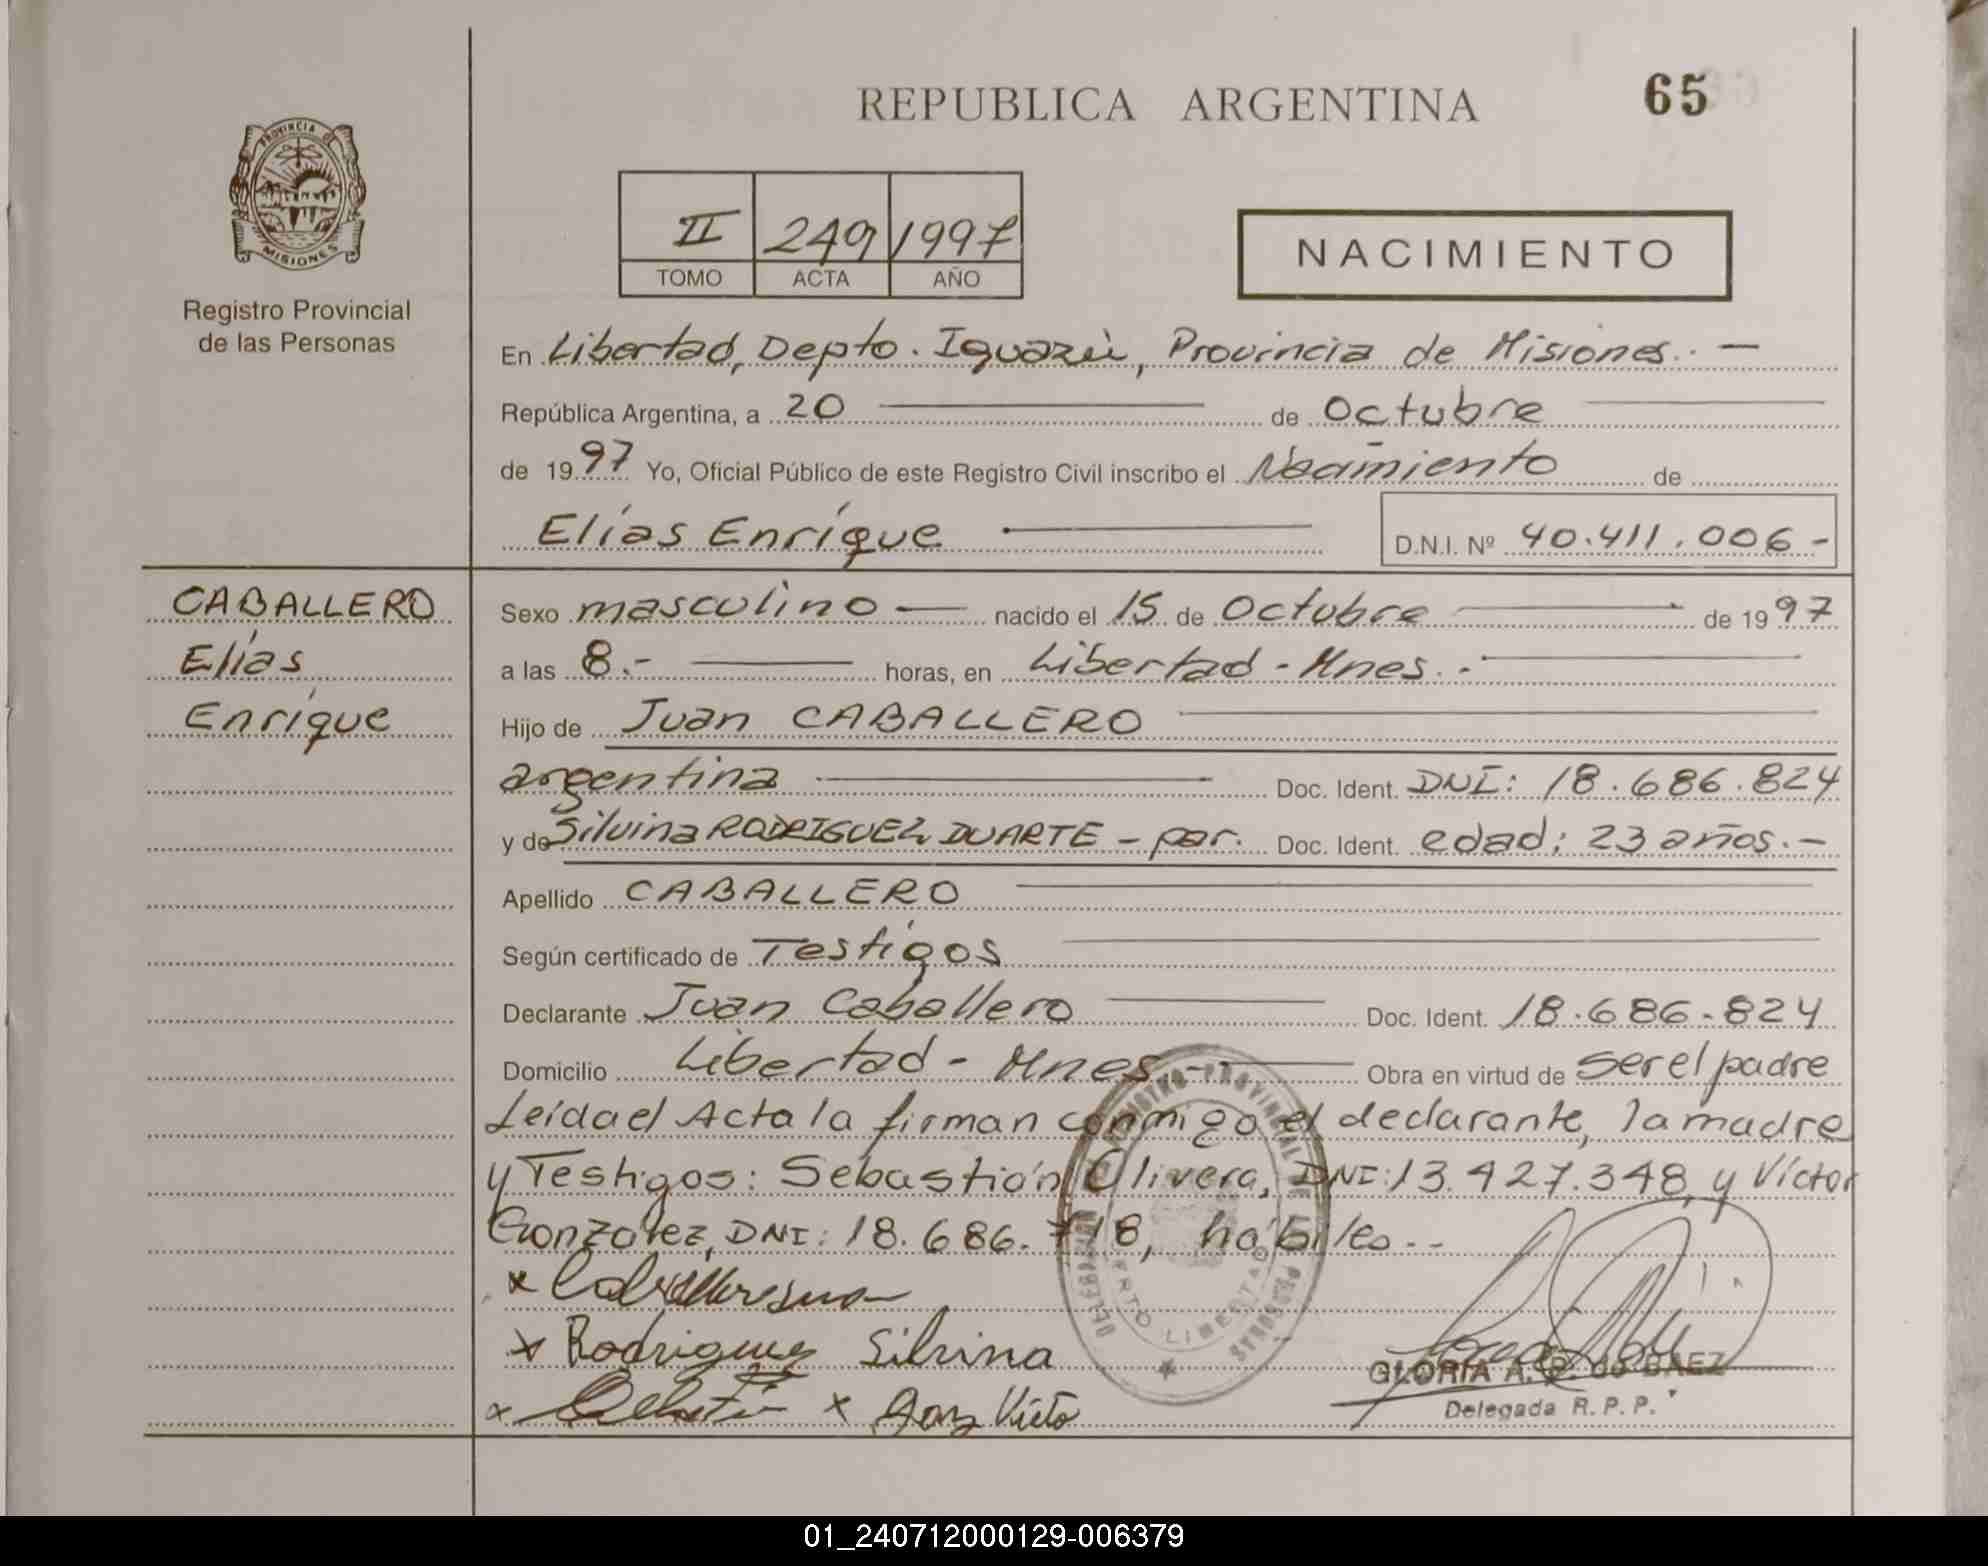 REPUBLICA ARGENTINA
65
PROVINCIA DE
MISIONES
Registro Provincial
de las Personas
II 249 1997
TOMO ACTA AÑO
NACIMIENTO
En Libertad, Depto. Iguazú, Provincia de Misiones. —
República Argentina, a 20 de Octubre
de 1997 Yo, Oficial Público de este Registro Civil inscribo el Nacimiento de
Elías Enrique
D.N.I. Nº 40.411.006-
CABALLERO
Elías
Enrique
Sexo masculino — nacido el 15 de Octubre de 1997
a las 8.- horas, en Libertad - Mnes.-
Hijo de Juan CABALLERO
argentina Doc. Ident. DNI: 18.686.824
y de Silvina RODRIGUEZ DUARTE - par. Doc. Ident. edad: 23 años.-
Apellido CABALLERO
Según certificado de Testigos
Declarante Juan Caballero Doc. Ident. 18.686.824
Domicilio Libertad - Mnes - Obra en virtud de ser el padre
Leída el Acta la firman conmigo el declarante, la madre
y Testigos: Sebastián Olivera, DNI: 13.427.348, y Víctor
González, DNI: 18.686.718, hábiles.-
x Caballero Juan
x Rodriguez Silvina
x x Gonz Victo
REGISTRO PROVINCIAL DE LAS PERSONAS
DELEGACION
PUERTO LIBERTAD
GLORIA A. P. de BAEZ
Delegada R. P. P.
01_240712000129-006379